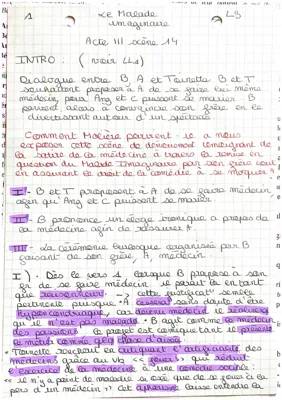 1 Le Malade L9
imaginaire
Acte III scène 14
INTRO : (voir LL1)
Dialogue entre B, A et Toinette B et T
souhaitent proposer à A de se faire lui même
médecin pour Ang et C puissent se marier B
parvient alors à convaincre son frère en le
divertissant autour d'un spectacle
Comment Molière parvient-il a nous
exposer cette scène de dénouement témoignant de
la satire de la médecine à travers la remise en
question du Malade Imaginaire par son frère tout
en assumant le droit de la comédie à se moquer ?
I - B et T proposent à A de se faire médecin
afin qu'Ang et C puissent se marier
II - B prononce un éloge ironique a propos de
la médecine afin de rassurer A.
III - La cérémonie burlesque organisée par B
faisant de son frère, A, médecin
I) . Dès le vers 1 lorsque B propose à son
fr de se faire médecin il parait là en tant
que raisonneur → cette justificat° semble
pertinente puisque A cessera sans doute d'être
hypercondriaque, car devenu médecin il
qu'il n'est pas malade. B agit comme le médecin
des passions le projet est comique tant il présente
le métier comme qlq chose d'aisé
Toinette renchérit en critiquant l'
médecins grâce au vb qui réduit
l'exercice de la médecine à une comédie sociale :
« il n'y a point de maladie si osé que de se jouer à la
pers d'un médecin » Cet aphorisme laisse entendre la